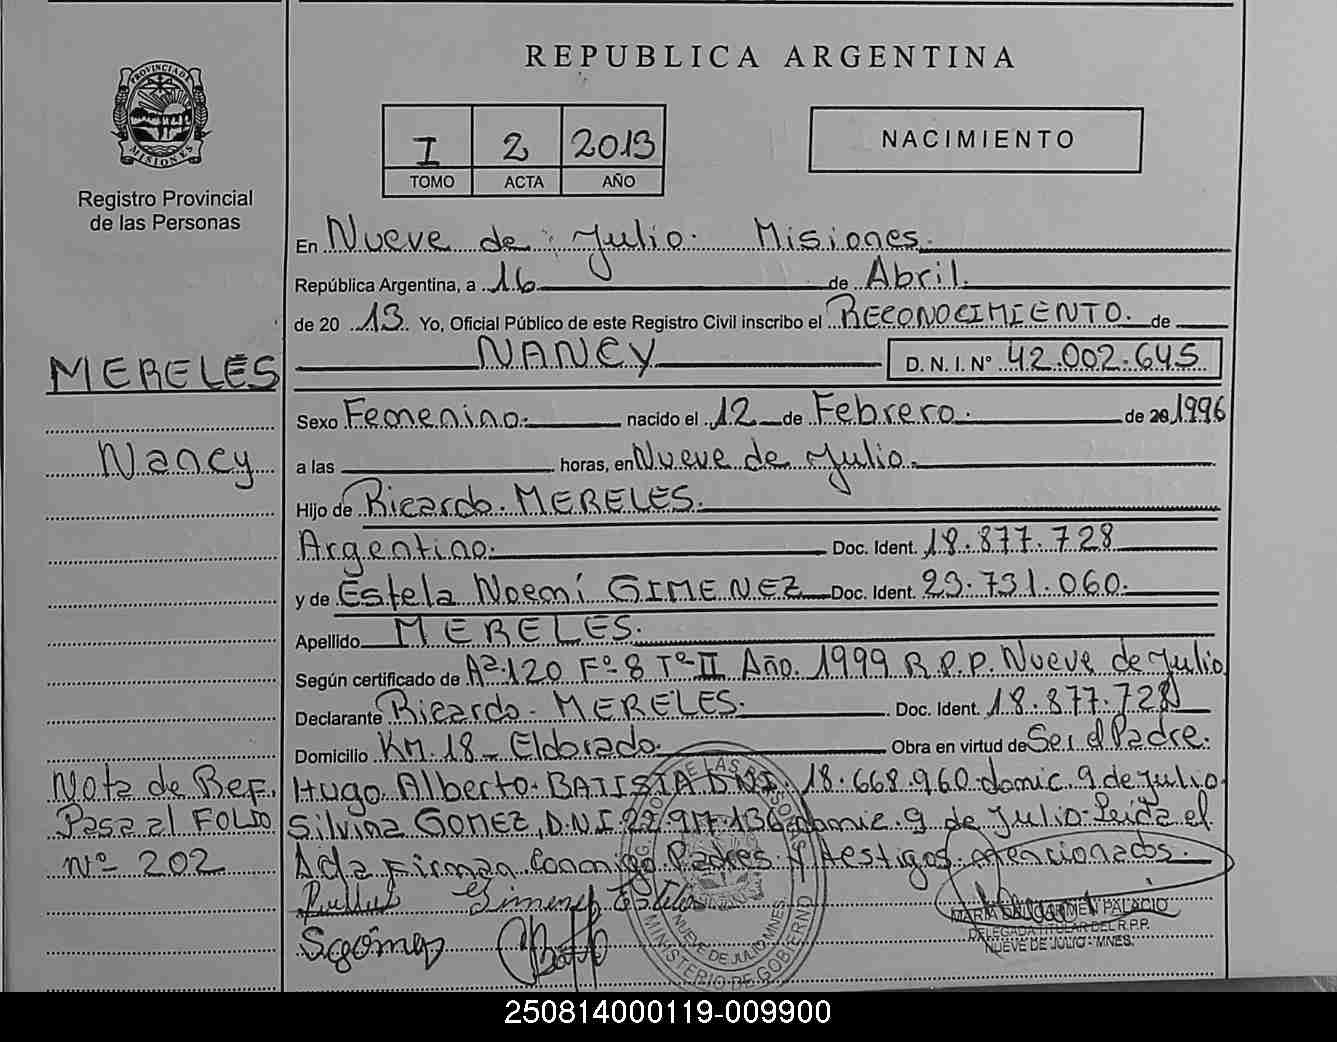 REPUBLICA ARGENTINA
PROVINCIA DE MISIONES
Registro Provincial
de las Personas
I 2 2013
TOMO ACTA AÑO
NACIMIENTO
En Nueve de Julio. Misiones.
República Argentina, a 16 de Abril.
de 20 13. Yo, Oficial Público de este Registro Civil inscribo el RECONOCIMIENTO. de
NANCY D. N. I. Nº 42.002.645
MERELES
Sexo Femenino. nacido el 12 de Febrero. de 20 1996
Nancy
a las horas, en Nueve de Julio.
Hijo de Ricardo. MERELES.
Argentino. Doc. Ident. 18.877.728
y de Estela Noemí GIMENEZ Doc. Ident. 23.731.060.
Apellido MERELES.
Según certificado de Aº 120 Fº 8 Tº II Año. 1999 R.P.P. Nueve de Julio
Declarante Ricardo. MERELES. Doc. Ident. 18.877.728
Domicilio KM. 18 - Eldorado. Obra en virtud de Ser el Padre.
Nota de Ref.
Pasa al FOLIO
Nº 202
Hugo Alberto. BATISTA D.N.I. 18.668.960 domic. 9 de Julio
Silvina GOMEZ, D.N.I. 22.917.136 domic 9 de Julio. Leida el
Acta Firman Conmigo Padres y testigos mencionados.
Gimenez Estela
SGómez
MARIA DEL CARMEN PALACIO
DELEGADA TITULAR DEL R.P.P.
NUEVE DE JULIO - MNES.
NUEVE DE JULIO MNES.
MINISTERIO DE GOBIERNO
250814000119-009900